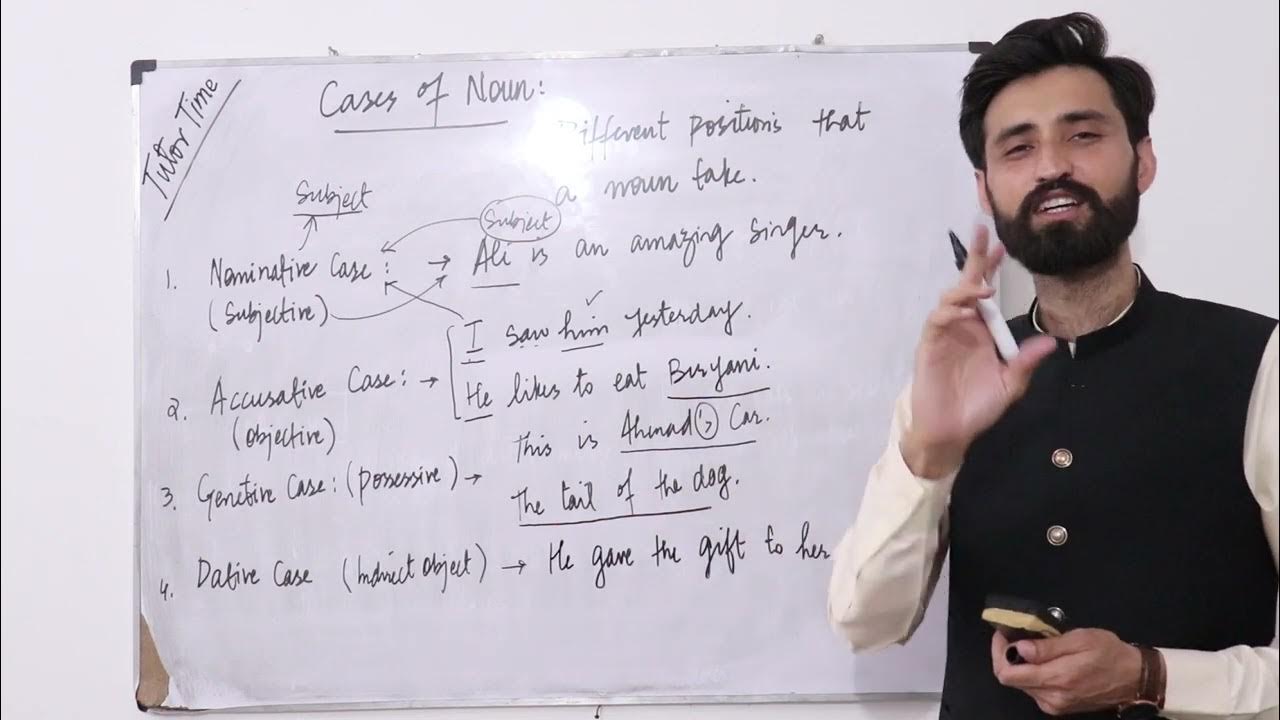 Tutor Time
Cases of Noun:
Different positions that
a noun take.
Subject
Subject
1. Nominative Case : → Ali is an amazing singer.
(Subjective)
I saw him yesterday.
2. Accusative Case : → He likes to eat Biryani.
(Objective)
This is Ahmad's Car.
3. Genetive Case : (Possessive) →
The tail of the dog.
4. Dative Case (Indirect Object) → He gave the gift to her